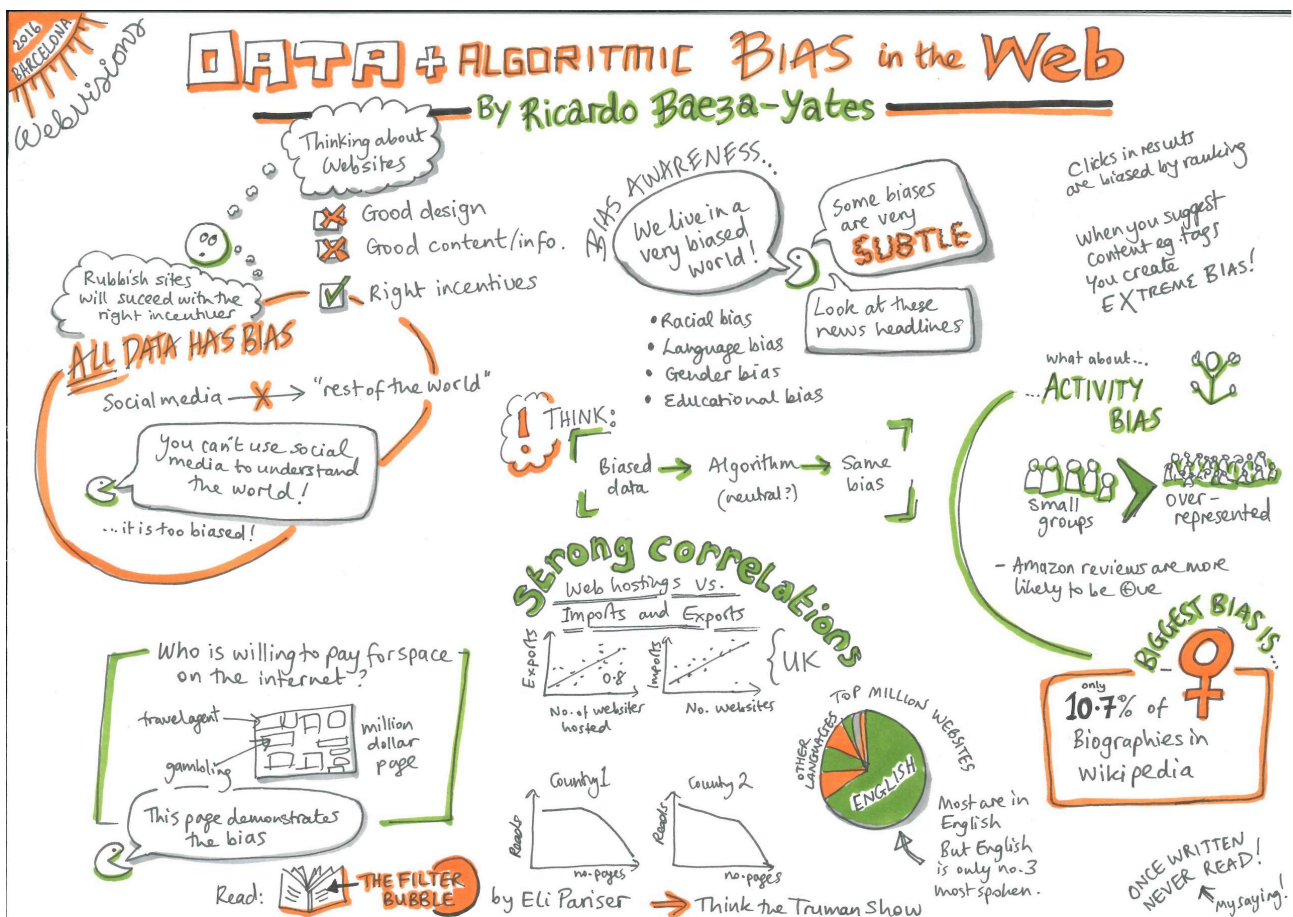 2016
BARCELONA
WebVisions
DATA + ALGORITMIC BIAS in the Web
By Ricardo Baeza-Yates
Thinking about
Websites
Good design
Good content/info.
Right incentives
Rubbish sites
will suceed with the
right incentives
ALL DATA HAS BIAS
Social media
"rest of the world"
You can't use social
media to understand
the world!
...it is too biased!
BIAS AWARENESS...
We live in a
very biased
world!
Some biases
are very
SUBTLE
Look at these
news headlines
• Racial bias
• Language bias
• Gender bias
• Educational bias
Clicks in results
are biased by ranking
When you suggest
content eg. tags
You create
EXTREME BIAS!
! THINK:
Biased
data
Algorithm
(neutral?)
Same
bias
what about...
...ACTIVITY
BIAS
small
groups
over-
represented
- Amazon reviews are more
likely to be ⊕ve
BIGGEST BIAS IS...
only
10.7% of
Biographies in
Wikipedia
Strong correlations
Web hostings vs.
Imports and Exports
Exports
0.8
No. of websites
hosted
Imports
No. websites
UK
Who is willing to pay for space
on the internet?
travel agent
gambling
million
dollar
page
This page demonstrates
the bias
Country 1
Reads
no. pages
Country 2
Reads
no. pages
TOP MILLION WEBSITES
OTHER
LANGUAGES
ENGLISH
Most are in
English
But English
is only no. 3
most spoken.
Read:
THE FILTER
BUBBLE
by Eli Pariser
Think the Truman Show
ONCE WRITTEN
NEVER READ!
my saying!